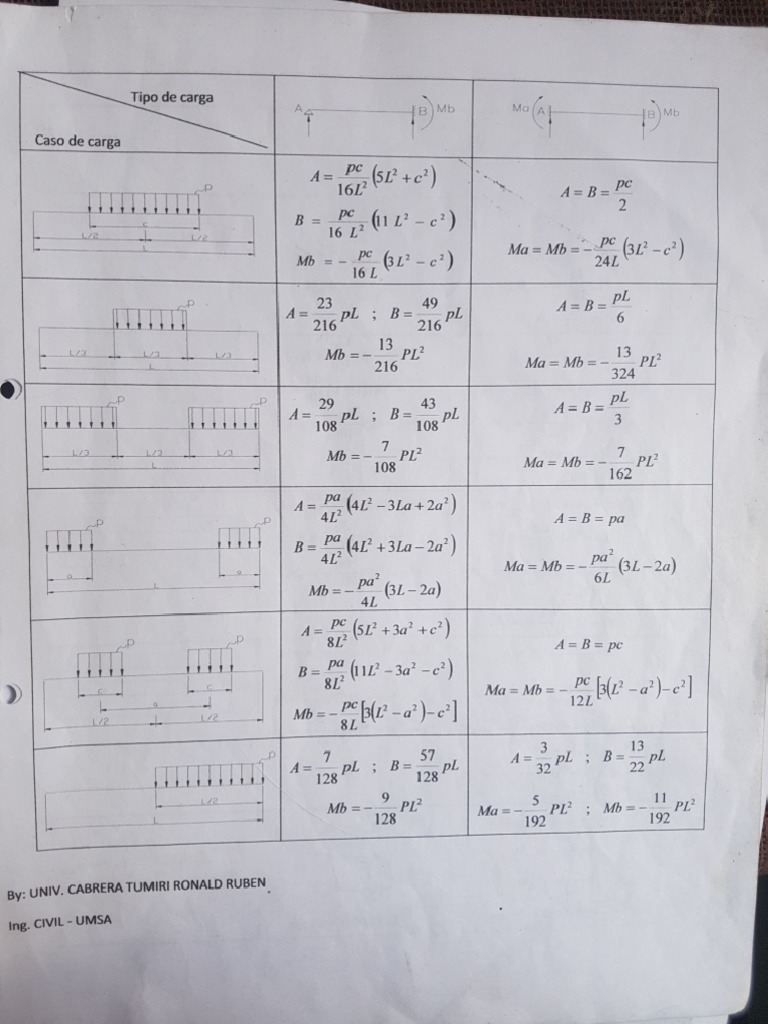 Tipo de carga
Caso de carga
A B Mb
Ma A B Mb
p
c
L/2 L/2
L
A = pc/16L² (5L² + c²)
B = pc/16 L² (11 L² − c²)
Mb = − pc/16 L (3L² − c²)
A = B = pc/2
Ma = Mb = − pc/24L (3L² − c²)
p
L/3 L/3 L/3
L
A = 23/216 pL ; B = 49/216 pL
Mb = − 13/216 PL²
A = B = pL/6
Ma = Mb = − 13/324 PL²
p p
L/3 L/3 L/3
L
A = 29/108 pL ; B = 43/108 pL
Mb = − 7/108 PL²
A = B = pL/3
Ma = Mb = − 7/162 PL²
p p
a a
L
A = pa/4L² (4L² − 3La + 2a²)
B = pa/4L² (4L² + 3La − 2a²)
Mb = − pa²/4L (3L − 2a)
A = B = pa
Ma = Mb = − pa²/6L (3L − 2a)
p p
c c
a
L/2 L/2
L
A = pc/8L² (5L² + 3a² + c²)
B = pa/8L² (11L² − 3a² − c²)
Mb = − pc/8L [3(L² − a²) − c²]
A = B = pc
Ma = Mb = − pc/12L [3(L² − a²) − c²]
p
L/2
L
A = 7/128 pL ; B = 57/128 pL
Mb = − 9/128 PL²
A = 3/32 pL ; B = 13/22 pL
Ma = − 5/192 PL² ; Mb = − 11/192 PL²
By: UNIV. CABRERA TUMIRI RONALD RUBEN
Ing. CIVIL - UMSA